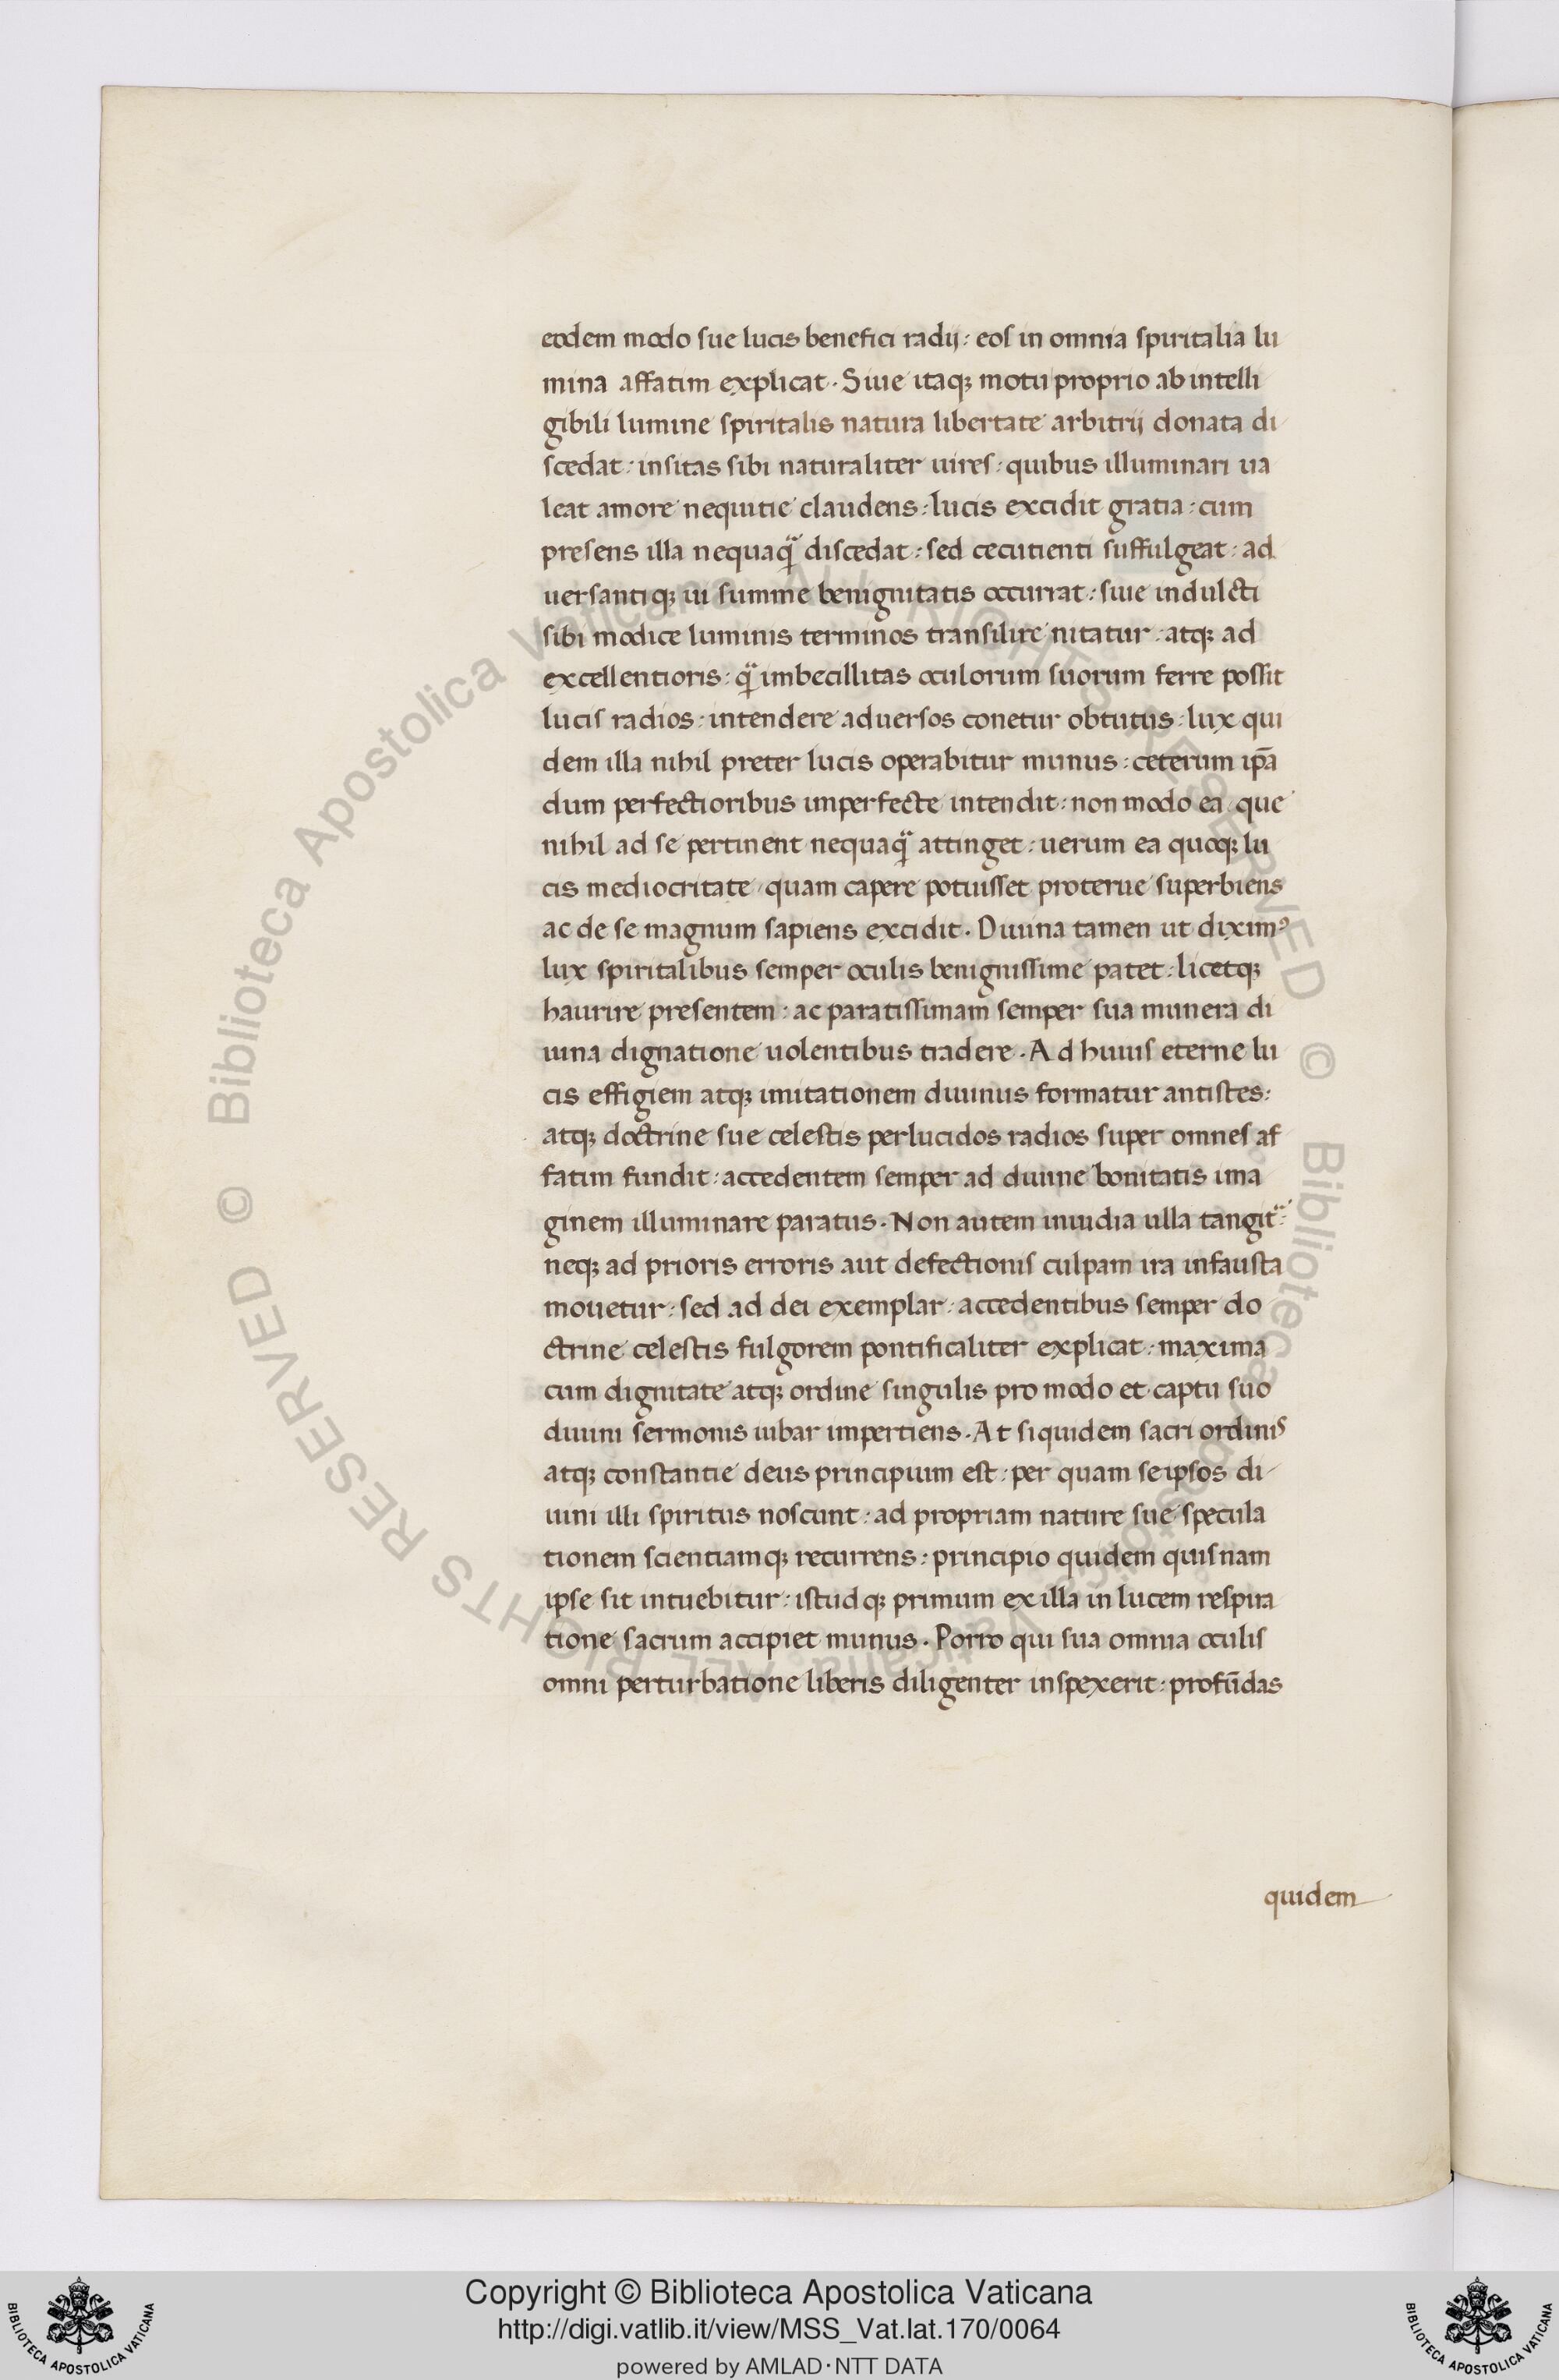 eodem modo sue lucis benefici radij: eos in omnia spiritalia lu
mina affatim explicat. Siue itaqꝫ motu proprio ab intelli
gibili lumine spiritalis natura libertate arbitrij donata di
scedat: insitas sibi naturaliter uires: quibus illuminari ua
leat amore nequitie claudens: lucis excidit gratia: cum
presens illa nequaq̃ discedat: sed cecutienti suffulgeat: ad
uersantiqꝫ ui summe benignitatis occurrat: siue indulcti
sibi modice luminis terminos transilire nitatur: atqꝫ ad
excellentioris: q̃ imbecillitas oculorum suorum ferre possit
lucis radios: intendere aduersos conetur obtutus: lux qui
dem illa nihil preter lucis operabitur munus: ceterum ip̄a
dum perfectioribus imperfecte intendit: non modo ea que
nihil ad se pertinent nequaq̃ attinget: uerum ea quoqꝫ lu
cis mediocritate quam capere potuisset proterue superbiens
ac de se magnum sapiens excidit. Diuina tamen ut diximꝰ
lux spiritalibus semper oculis benignissime patet: licetqꝫ
haurire presentem: ac paratissimam semper sua munera di
uina dignatione uolentibus tradere. Ad huius eterne lu
cis effigiem atqꝫ imitationem diuinus formatur antistes:
atqꝫ doctrine sue celestis perlucidos radios super omnes af
fatim fundit: accedentem semper ad diuine bonitatis ima
ginem illuminare paratus. Non autem inuidia ulla tangit᷑:
neqꝫ ad prioris erroris aut defectionis culpam ira infausta
mouetur: sed ad dei exemplar: accedentibus semper do
ctrine celestis fulgorem pontificaliter explicat: maxima
cum dignitate atqꝫ ordine singulis pro modo et captu suo
diuini sermonis iubar impertiens. At siquidem sacri ordinis
atqꝫ constantie deus principium est: per quam seipsos di
uini illi spiritus noscunt: ad propriam nature sue specula
tionem scientiamqꝫ recurrens: principio quidem quisnam
ipse sit intuebitur: istudqꝫ primum ex illa in lucem respira
tione sacrum accipiet munus. Porro qui sua omnia oculis
omni perturbatione liberis diligenter inspexerit: profūdas
quidem
© Biblioteca Apostolica Vaticana ALL RIGHTS RESERVED © Biblioteca Apostolica Vaticana ALL RIGHTS RESERVED
Copyright © Biblioteca Apostolica Vaticana
http://digi.vatlib.it/view/MSS_Vat.lat.170/0064
powered by AMLAD·NTT DATA
BIBLIOTECA APOSTOLICA VATICANA
BIBLIOTECA APOSTOLICA VATICANA